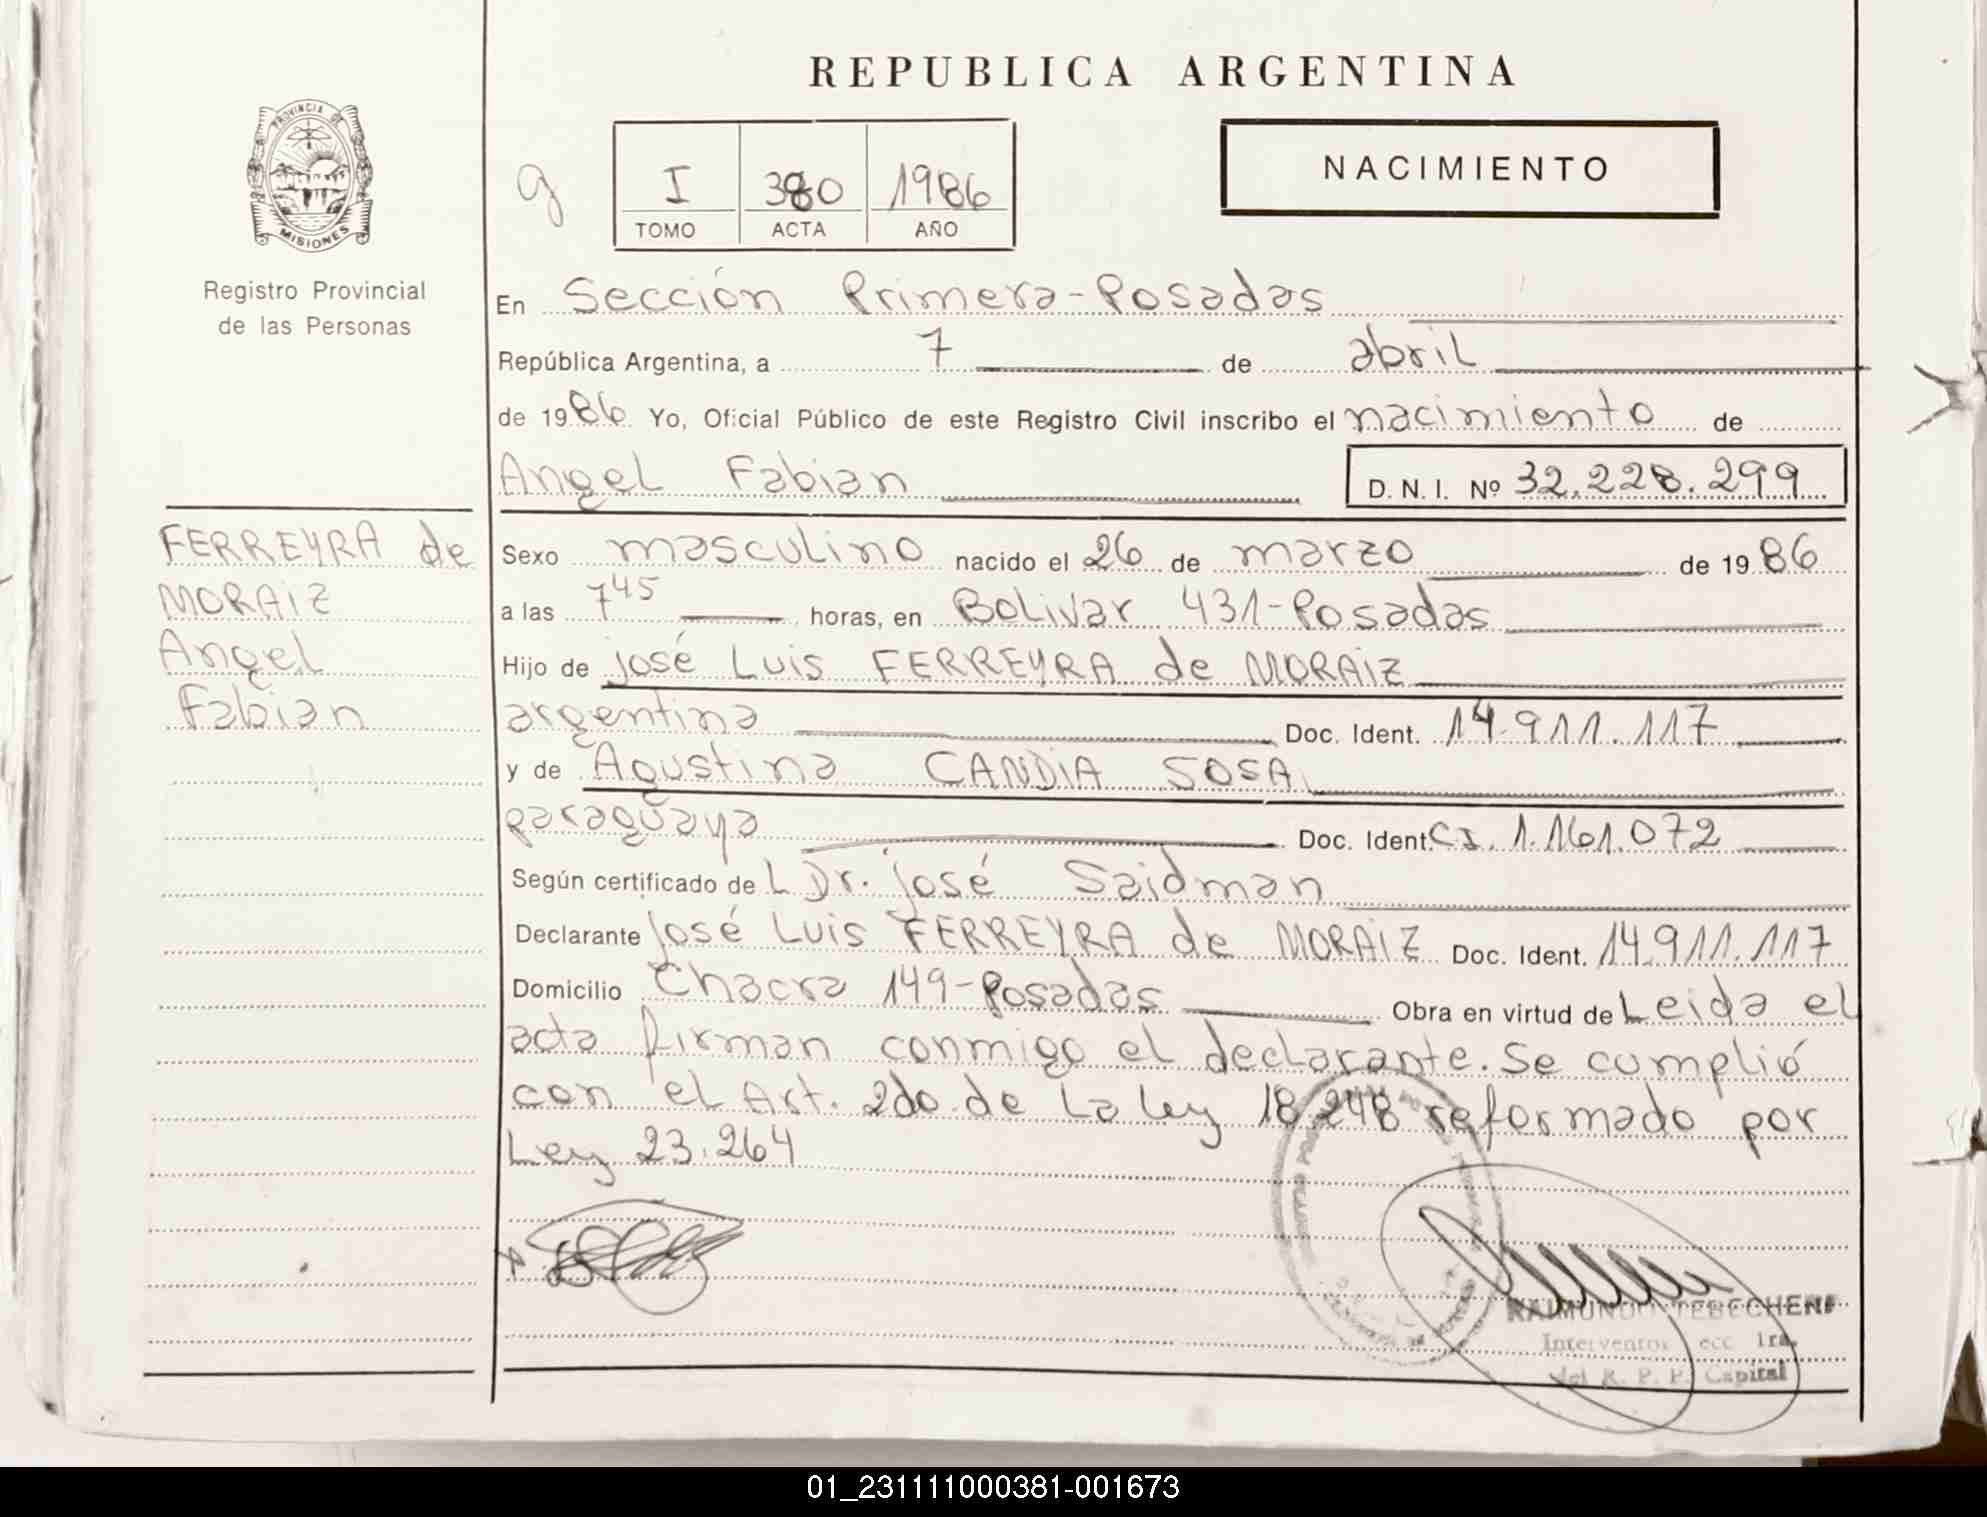 REPUBLICA ARGENTINA
PROVINCIA DE
MISIONES
Registro Provincial
de las Personas
g
I 380 1986
TOMO ACTA AÑO
NACIMIENTO
En Sección Primera-Posadas
República Argentina, a 7 de abril
de 1986 Yo, Oficial Público de este Registro Civil inscribo el nacimiento de
Angel Fabian D. N. I. Nº 32.228.299
FERREYRA de
MORAIZ
Angel
Fabian
Sexo masculino nacido el 26 de marzo de 1986
a las 7 45 horas, en Bolivar 431-Posadas
Hijo de José Luis FERREYRA de MORAIZ
argentina Doc. Ident. 14.911.117
y de Agustina CANDIA SOSA
paraguaya Doc. Ident. CI. 1.161.072
Según certificado de L Dr. José Saidman
Declarante José Luis FERREYRA de MORAIZ Doc. Ident. 14.911.117
Domicilio Chacra 149-Posadas Obra en virtud de Leida el
acta firman conmigo el declarante. Se cumplió
con el Art. 2do de La Ley 18.248 reformado por
Ley 23.264
RAIMUNDO
Interventor ecc 1ra.
del R. P. P. Capital
01_231111000381-001673